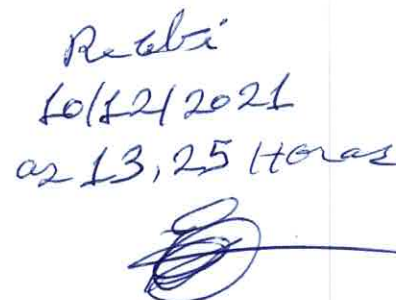 Recebi
10/12/2021
as 13,25 Horas